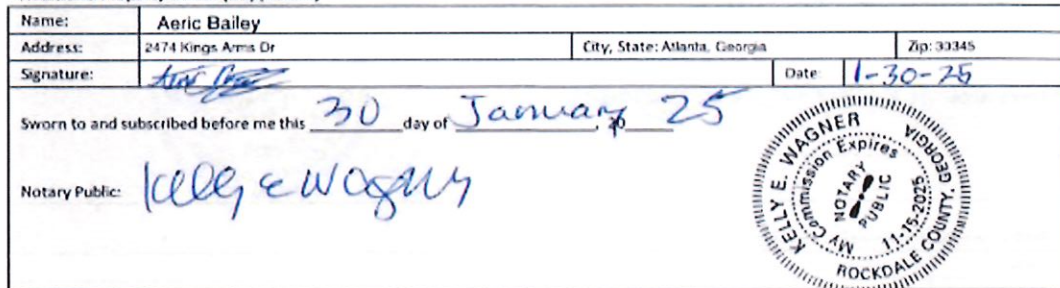 Name: Aeric Bailey
Address: 2474 Kings Arms Dr City, State: Atlanta, Georgia Zip: 30345
Signature: Date 1-30-25
Sworn to and subscribed before me this 30 day of January, 20 25
Notary Public: Kelly E Wagner
KELLY E. WAGNER
My Commission Expires
NOTARY
PUBLIC
11-15-2025
ROCKDALE COUNTY, GEORGIA